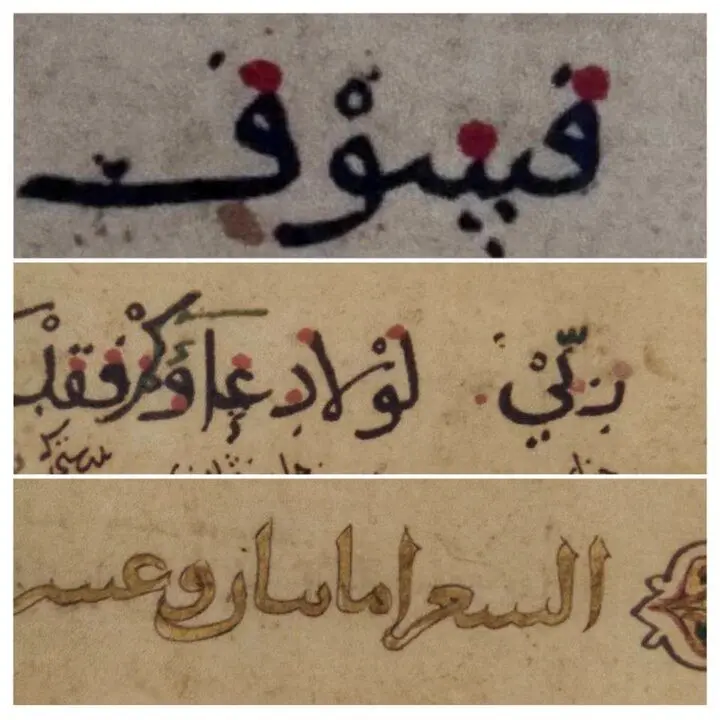 فَسَوْفَ
رَبِّي لَوْلَا دُعَاؤُكُمْ فَقَدْ
الشعرا ماىتان وعشر